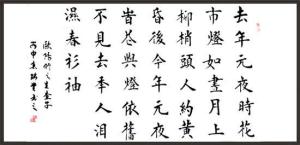 去年元夜時花
市燈如晝月上
柳梢頭人約黃
昏後今年元夜
旹與燈依舊
不見去年人淚
濕春衫袖
歐陽修之生查子
丙申